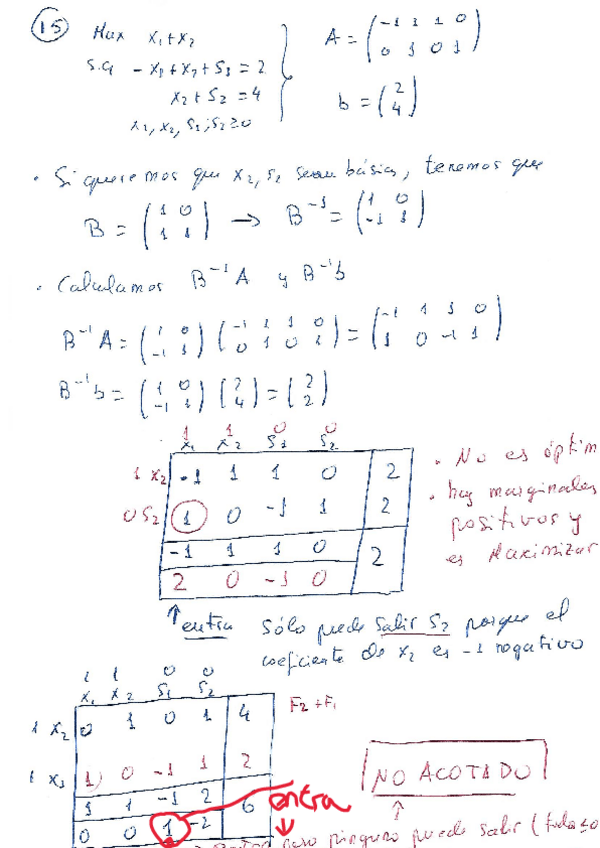 15 Max x₁+x₂
s.a -x₁+x₂+s₁=2
x₂+s₂=4
x₁,x₂,s₁,s₂≥0
A = (-1 1 1 0
0 1 0 1)
b = (2
4)
· Si queremos que x₂, s₂ sean básicas, tenemos que
B = (1 0
1 1) → B⁻¹ = (1 0
-1 1)
· Calculamos B⁻¹A y B⁻¹b
B⁻¹A = (1 0
-1 1) (-1 1 1 0
0 1 0 1) = (-1 1 1 0
1 0 -1 1)
B⁻¹b = (1 0
-1 1) (2
4) = (2
2)
1 1 0 0
x₁ x₂ s₁ s₂
1 x₂ -1 1 1 0 2
0 s₂ 1 0 -1 1 2
-1 1 1 0 2
2 0 -1 0
· No es óptim
· hay marginales
positivos y
es Maximizar
↑ entra Sólo puede salir s₂ porque el
coeficiente de x₂ es -1 negativo
1 1 0 0
x₁ x₂ s₁ s₂
1 x₂ 0 1 0 1 4 F₂+F₁
1 x₁ 1 0 -1 1 2
1 1 -1 2 6
0 0 1 -2
entra
NO ACOTADO
pero ninguno puede salir (todos ≤0